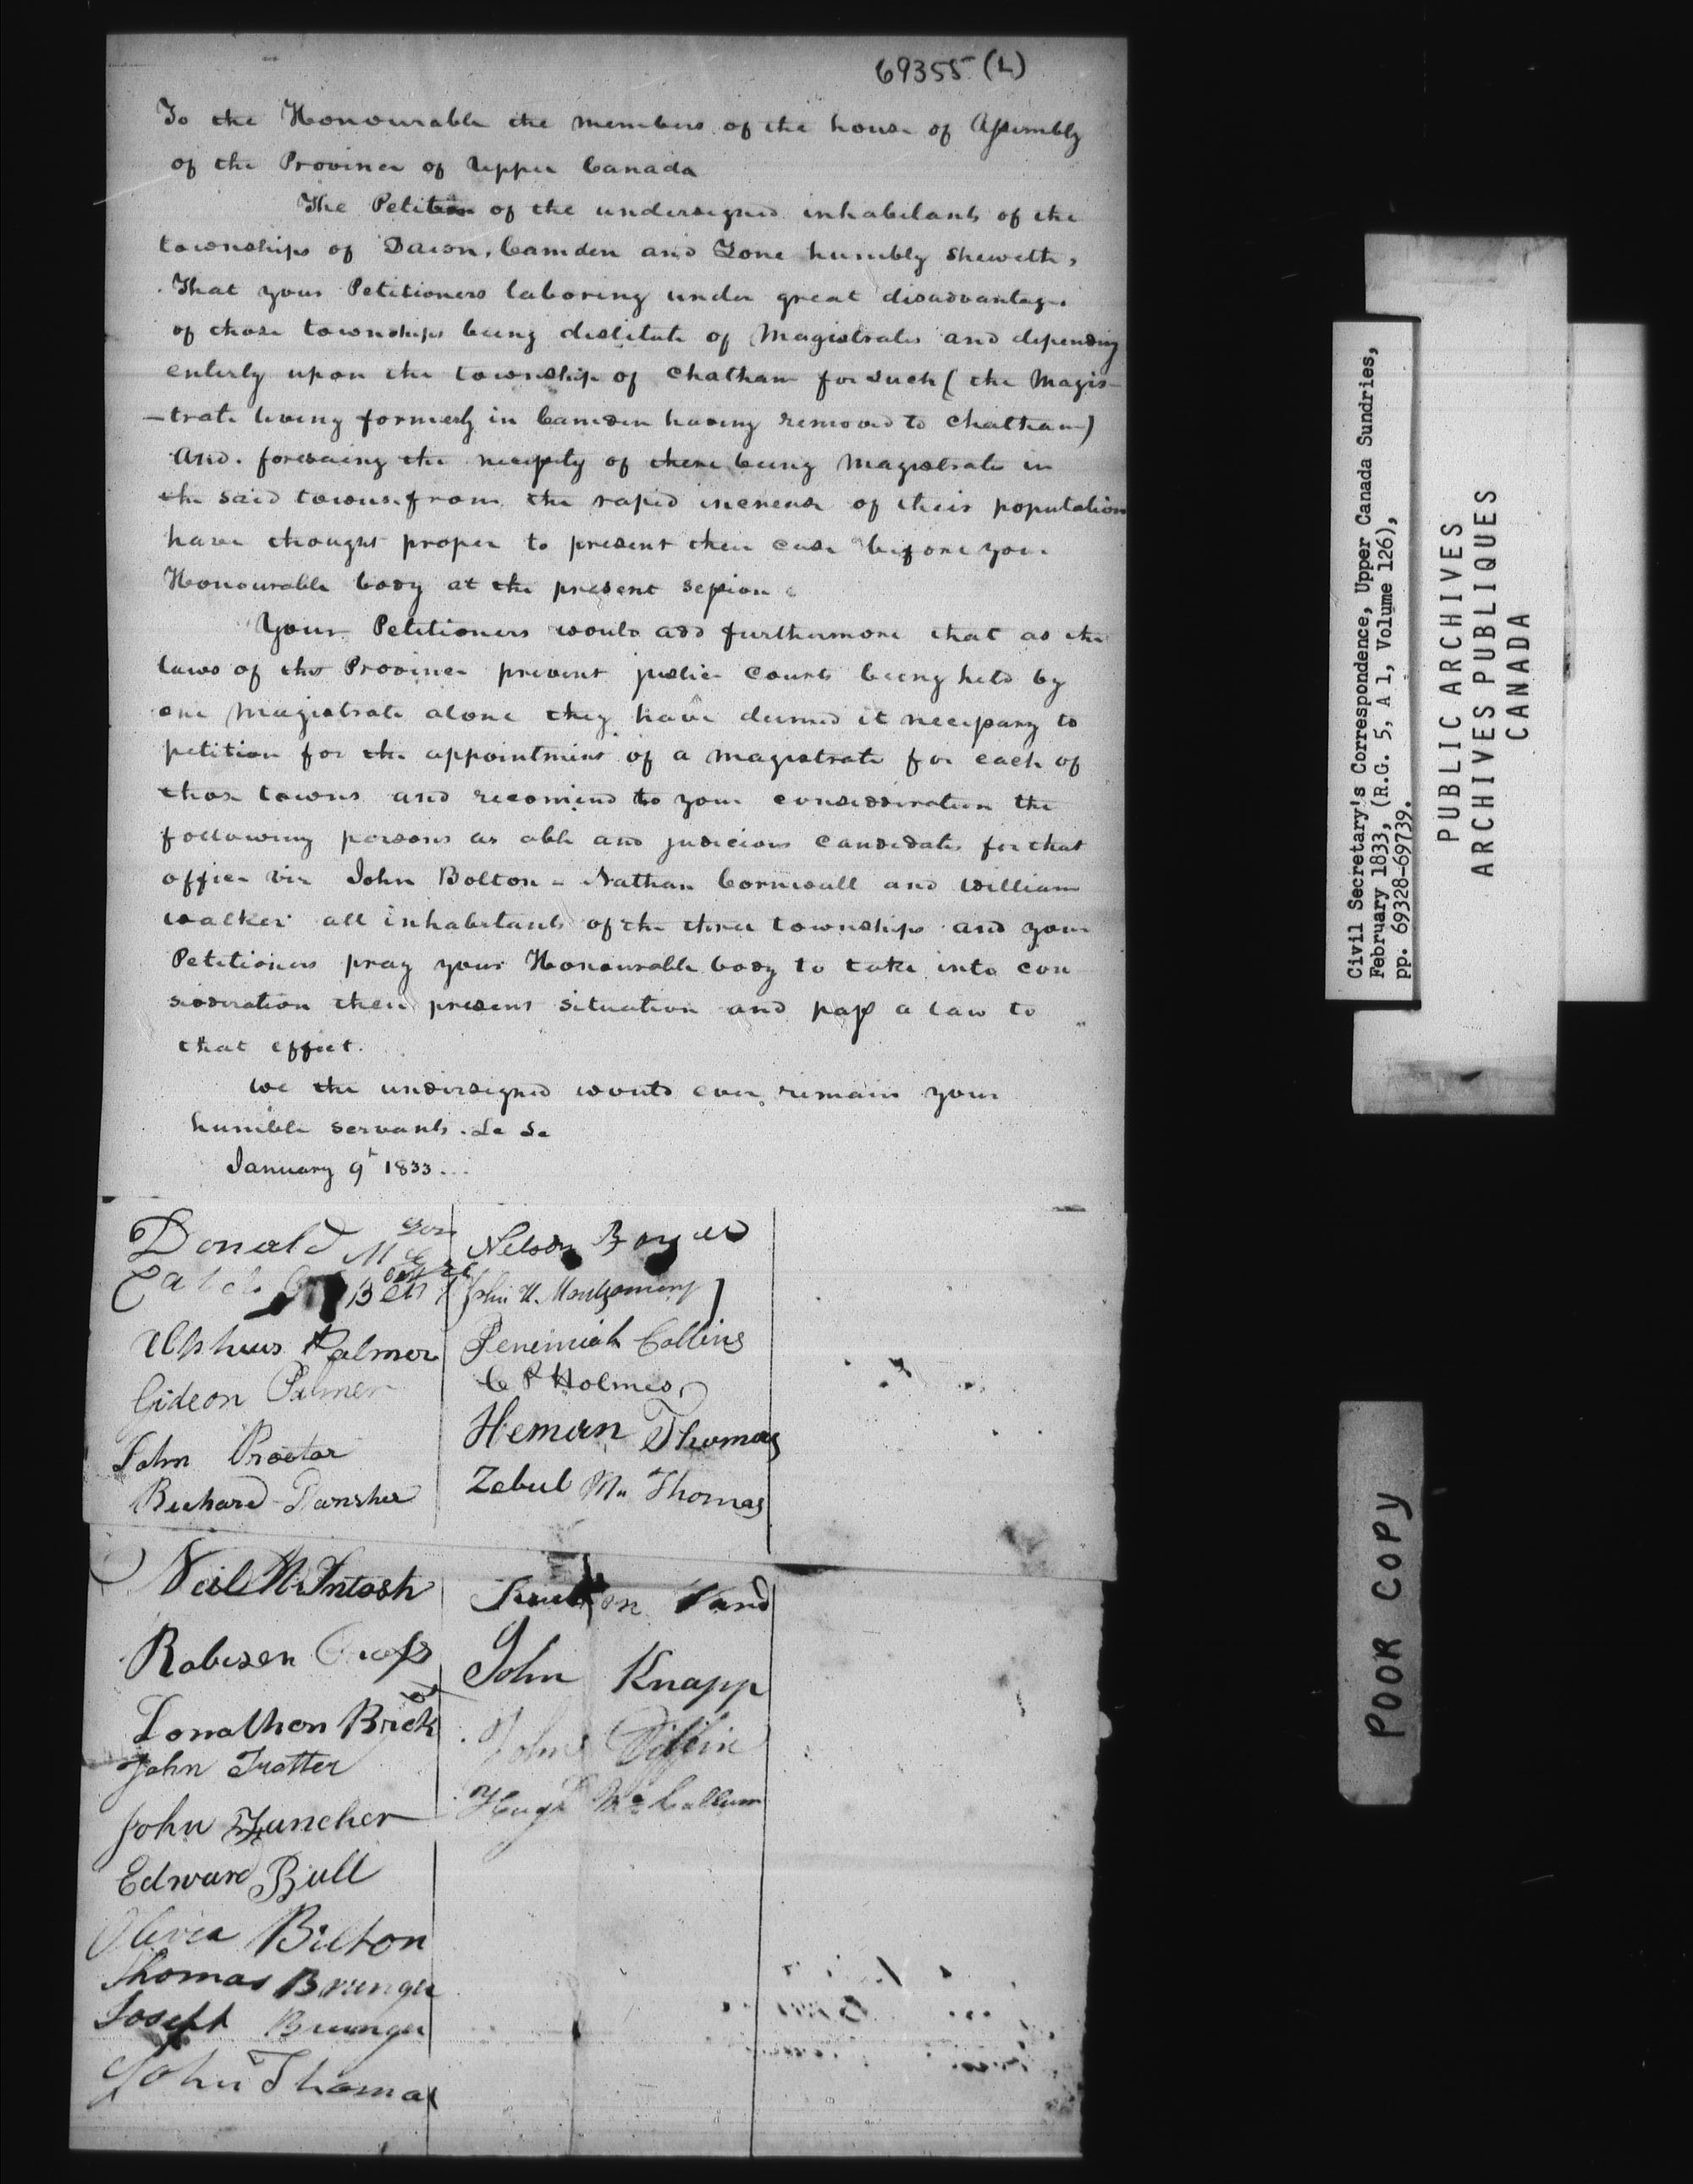 69355 (L)
To the Honourable the members of the house of Assembly
of the Province of Upper Canada
The Petition of the undersigned inhabitants of the
townships of Dawn, Camden and Zone humbly sheweth,
That your Petitioners laboring under great disadvantages
of those townships being destitute of Magistrates and depending
enterly upon the township of Chatham for such (the Magis-
-trate living formerly in Camden having removed to Chatham)
And. foreseeing the necessity of there being magistrates in
the said towns. from the rapid increase of their population
have thought proper to present their case before your
Honourable body at the present session
Your Petitioners would add furthermore that as the
laws of this Province prevent justice Courts being held by
one Magistrate alone they have deemed it necessary to
petition for the appointment of a magistrate for each of
those towns and recomend to your consideration the
following persons as able and judicious candidates for that
office viz John Bolton - Nathan Cornwall and William
Walker all inhabitants of the three townships and your
Petitioners pray your Honourable body to take into con
sideration their present situation and pass a law to
that effect.
We the undersigned would ever remain your
humble servants. &c &c
January 9th 1833...
Donald Mc
Nelson
John H. Montgomery
Alpheus Palmer
Jeremiah Collins
Gideon Palmer
C P Holmes
John Proctor
Heman Thomas
Richard
Zebul M. Thomas
Neil McIntosh
Robisen
John Knapp
Jonathon Brick
John Trotter
John
Hugh McCallum
John Funcher
Edward Bull
Oliver Bilton
Thomas
Joseph
John Thomas
Civil Secretary's Correspondence, Upper Canada Sundries,
February 1833, (R.G. 5, A 1, Volume 126),
pp. 69328-69739.
PUBLIC ARCHIVES
ARCHIVES PUBLIQUES
CANADA
POOR COPY